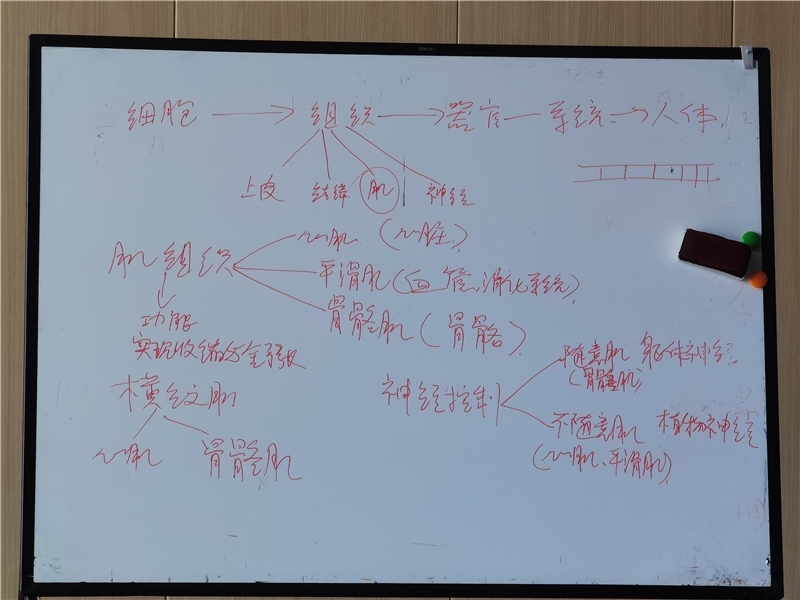 细胞 → 组织 → 器官 — 系统 → 人体
上皮 结缔 肌 神经
肌组织
心肌 (心脏)
平滑肌 (血管、消化系统)
骨骼肌 (骨骼)
功能
实现收缩
横纹肌
心肌 骨骼肌
神经控制
随意肌 躯体神经
(骨骼肌)
不随意肌 植物神经
(心肌、平滑肌)